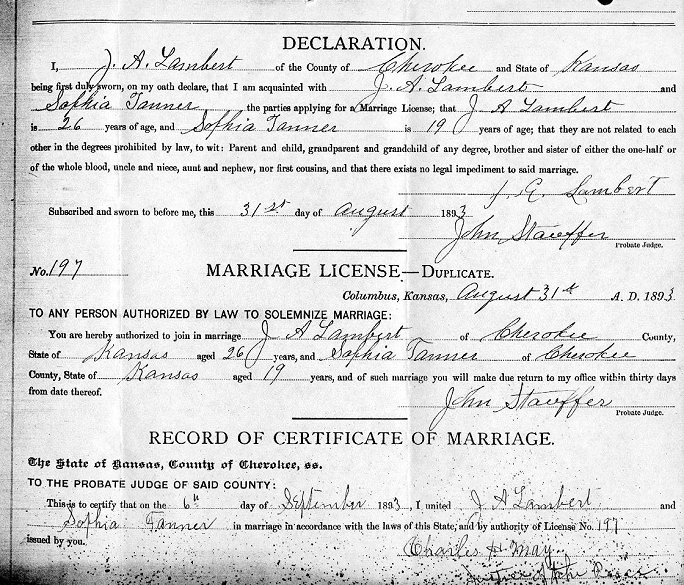 DECLARATION.
I, J. A. Lambert of the County of Cherokee and State of Kansas
being first duly sworn, on my oath declare, that I am acquainted with J. A. Lambert and
Sophia Tanner the parties applying for a Marriage License; that J A Lambert
is 26 years of age, and Sophia Tanner is 19 years of age; that they are not related to each
other in the degrees prohibited by law, to wit: Parent and child, grandparent and grandchild of any degree, brother and sister of either the one-half or
of the whole blood, uncle and niece, aunt and nephew, nor first cousins, and that there exists no legal impediment to said marriage.
Lambert
Subscribed and sworn to before me, this 31st day of August 1893
John Stauffer
Probate Judge.
No. 197 MARRIAGE LICENSE—DUPLICATE.
Columbus, Kansas, August 31st A. D. 1893
TO ANY PERSON AUTHORIZED BY LAW TO SOLEMNIZE MARRIAGE:
You are hereby authorized to join in marriage J A Lambert of Cherokee County,
State of Kansas aged 26 years, and Sophia Tanner of Cherokee
County, State of Kansas aged 19 years, and of such marriage you will make due return to my office within thirty days
from date thereof.
John Stauffer
Probate Judge.
RECORD OF CERTIFICATE OF MARRIAGE.
The State of Kansas, County of Cherokee, ss.
TO THE PROBATE JUDGE OF SAID COUNTY:
This is to certify that on the 6th day of September 1893, I united J A Lambert and
Sophia Tanner in marriage in accordance with the laws of this State, and by authority of License No. 197
issued by you.
Charles H May
Justice of the Peace